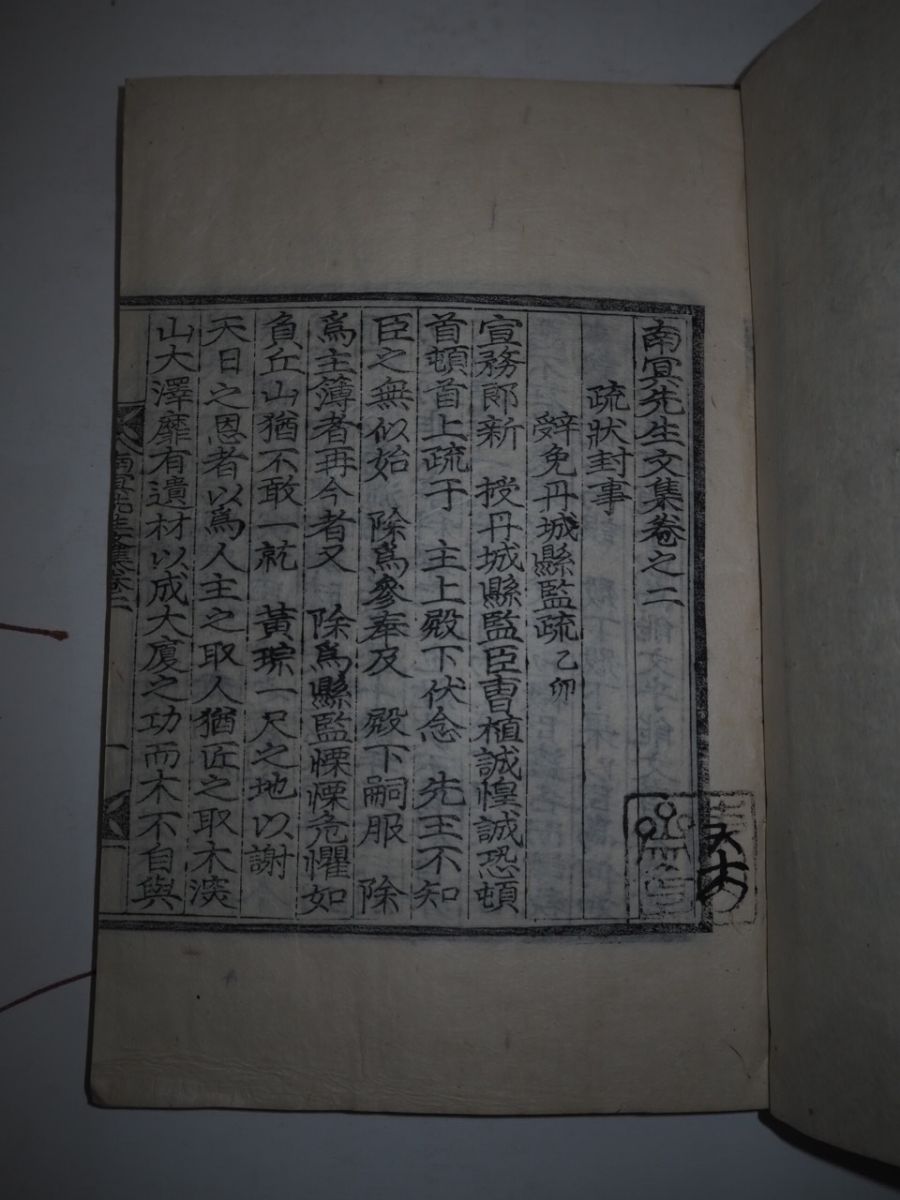 南冥先生文集卷之二
疏狀封事
辭免丹城縣監疏 乙卯
宣務郎新 授丹城縣監臣曺植誠惶誠恐頓
首頓首上疏于 主上殿下伏念 先王不知
臣之無似始 除爲參奉及 殿下嗣服 除
爲主簿者再今者又 除爲縣監慄慄危懼如
負丘山猶不敢一就 黃琮一尺之地以謝
天日之恩者以爲人主之取人猶匠之取木深
山大澤靡有遺材以成大廈之功而木不自與
南冥先生文集卷二
一